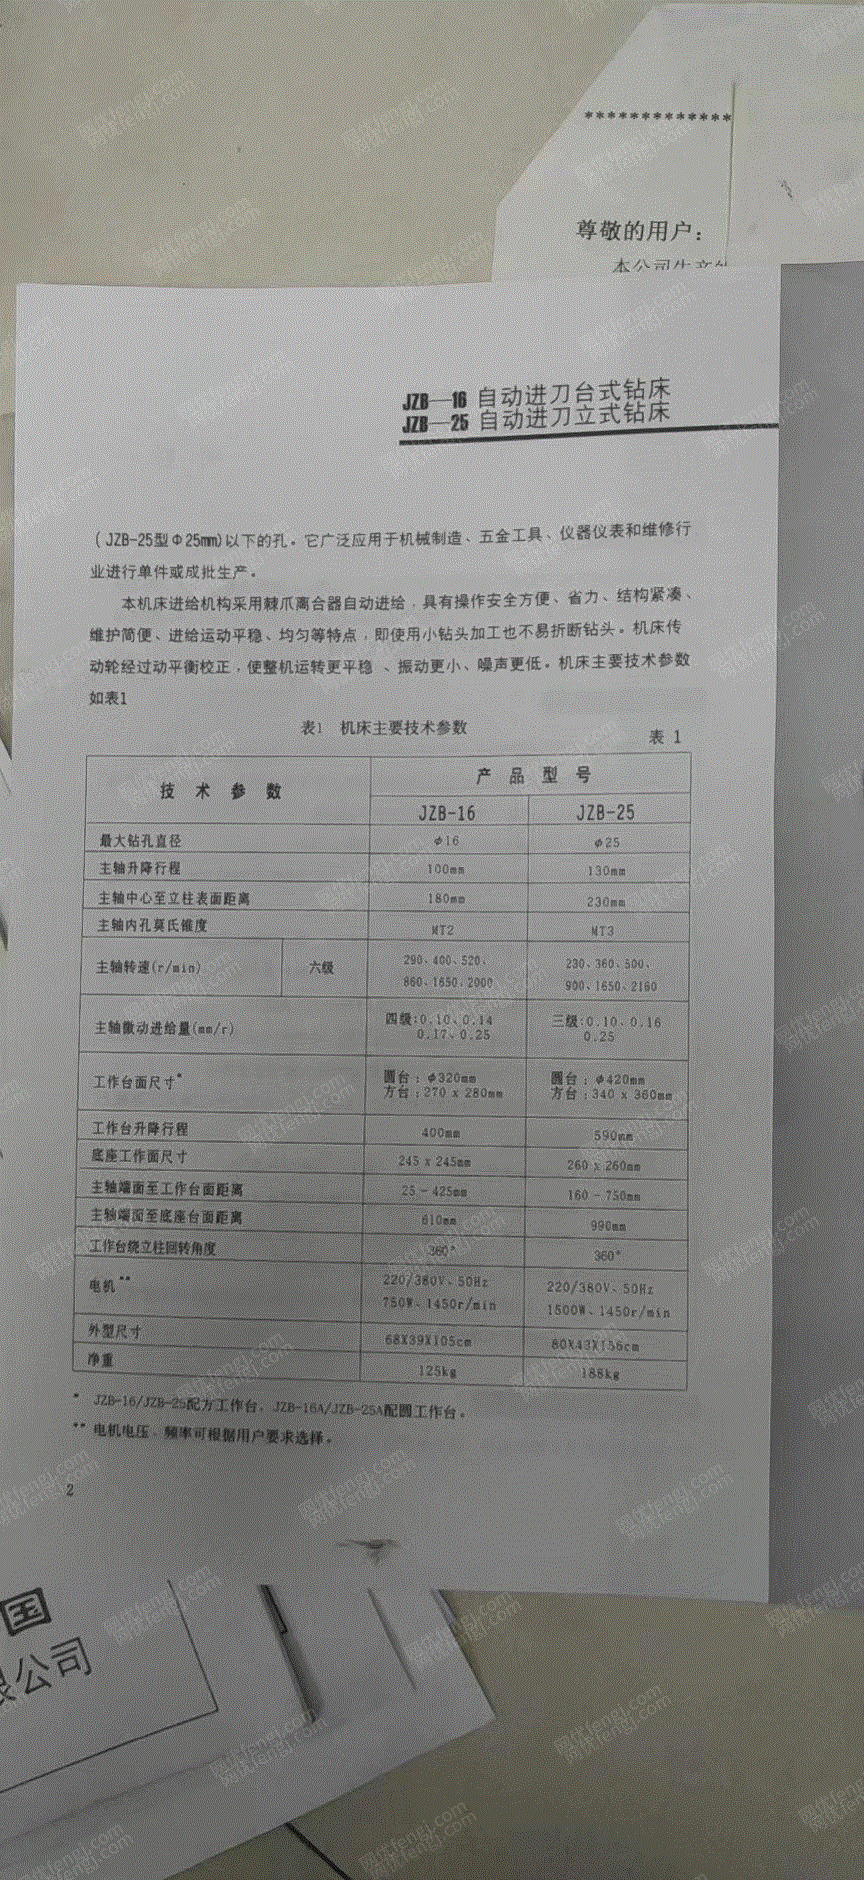 *************
尊敬的用户：
JZB—16 自动进刀台式钻床
JZB—25 自动进刀立式钻床
（JZB-25型Φ25mm)以下的孔。它广泛应用于机械制造、五金工具、仪器仪表和维修行
业进行单件或成批生产。
本机床进给机构采用棘爪离合器自动进给，具有操作安全方便、省力、结构紧凑、
维护简便、进给运动平稳、均匀等特点，即使用小钻头加工也不易折断钻头。机床传
动轮经过动平衡校正，使整机运转更平稳 、振动更小、噪声更低。机床主要技术参数
如表1
表1 机床主要技术参数
表 1
技 术 参 数 产 品 型 号
JZB-16 JZB-25
最大钻孔直径 φ16 φ25
主轴升降行程 100mm 130mm
主轴中心至立柱表面距离 180mm 230mm
主轴内孔莫氏锥度 MT2 MT3
主轴转速(r/min) 六级 290、400、520、 230、360、500、
860、1650、2000 900、1650、2160
主轴微动进给量(mm/r) 四级:0.10、0.14 三级:0.10、0.16
0.17、0.25 0.25
工作台面尺寸* 圆台：φ320mm 圆台：φ420mm
方台：270 x 280mm 方台：340 x 360mm
工作台升降行程 400mm 590mm
底座工作面尺寸 245 x 245mm 260 x 260mm
主轴端面至工作台面距离 25-425mm 160-750mm
主轴端面至底座台面距离 610mm 990mm
工作台绕立柱回转角度 360° 360°
电机** 220/380V、50Hz 220/380V、50Hz
750W、1450r/min 1500W、1450r/min
外型尺寸 68X39X105cm 80X43X156cm
净重 125kg 188kg
* JZB-16/JZB-25配方工作台，JZB-16A/JZB-25A配圆工作台。
** 电机电压、频率可根据用户要求选择。
2
国
限公司